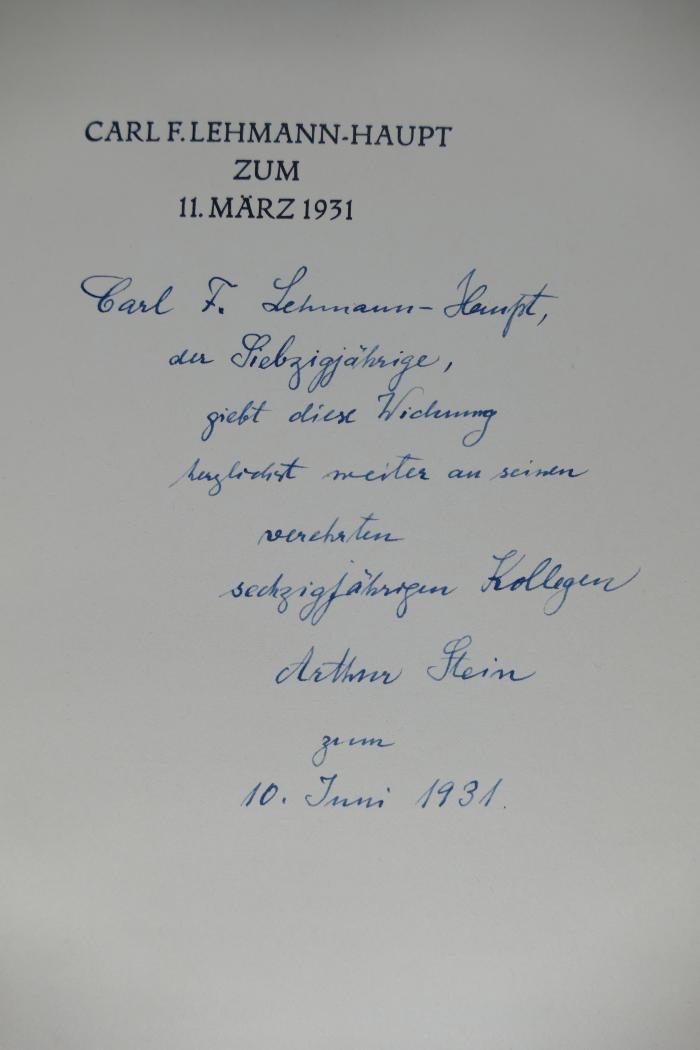 CARL F. LEHMANN-HAUPT
ZUM
11. MÄRZ 1931
Carl F. Lehmann-Haupt,
der Siebzigjährige,
giebt diese Widmung
herzlichst weiter an seinen
verehrten
sechzigjährigen Kollegen
Arthur Stein
zum
10. Juni 1931.